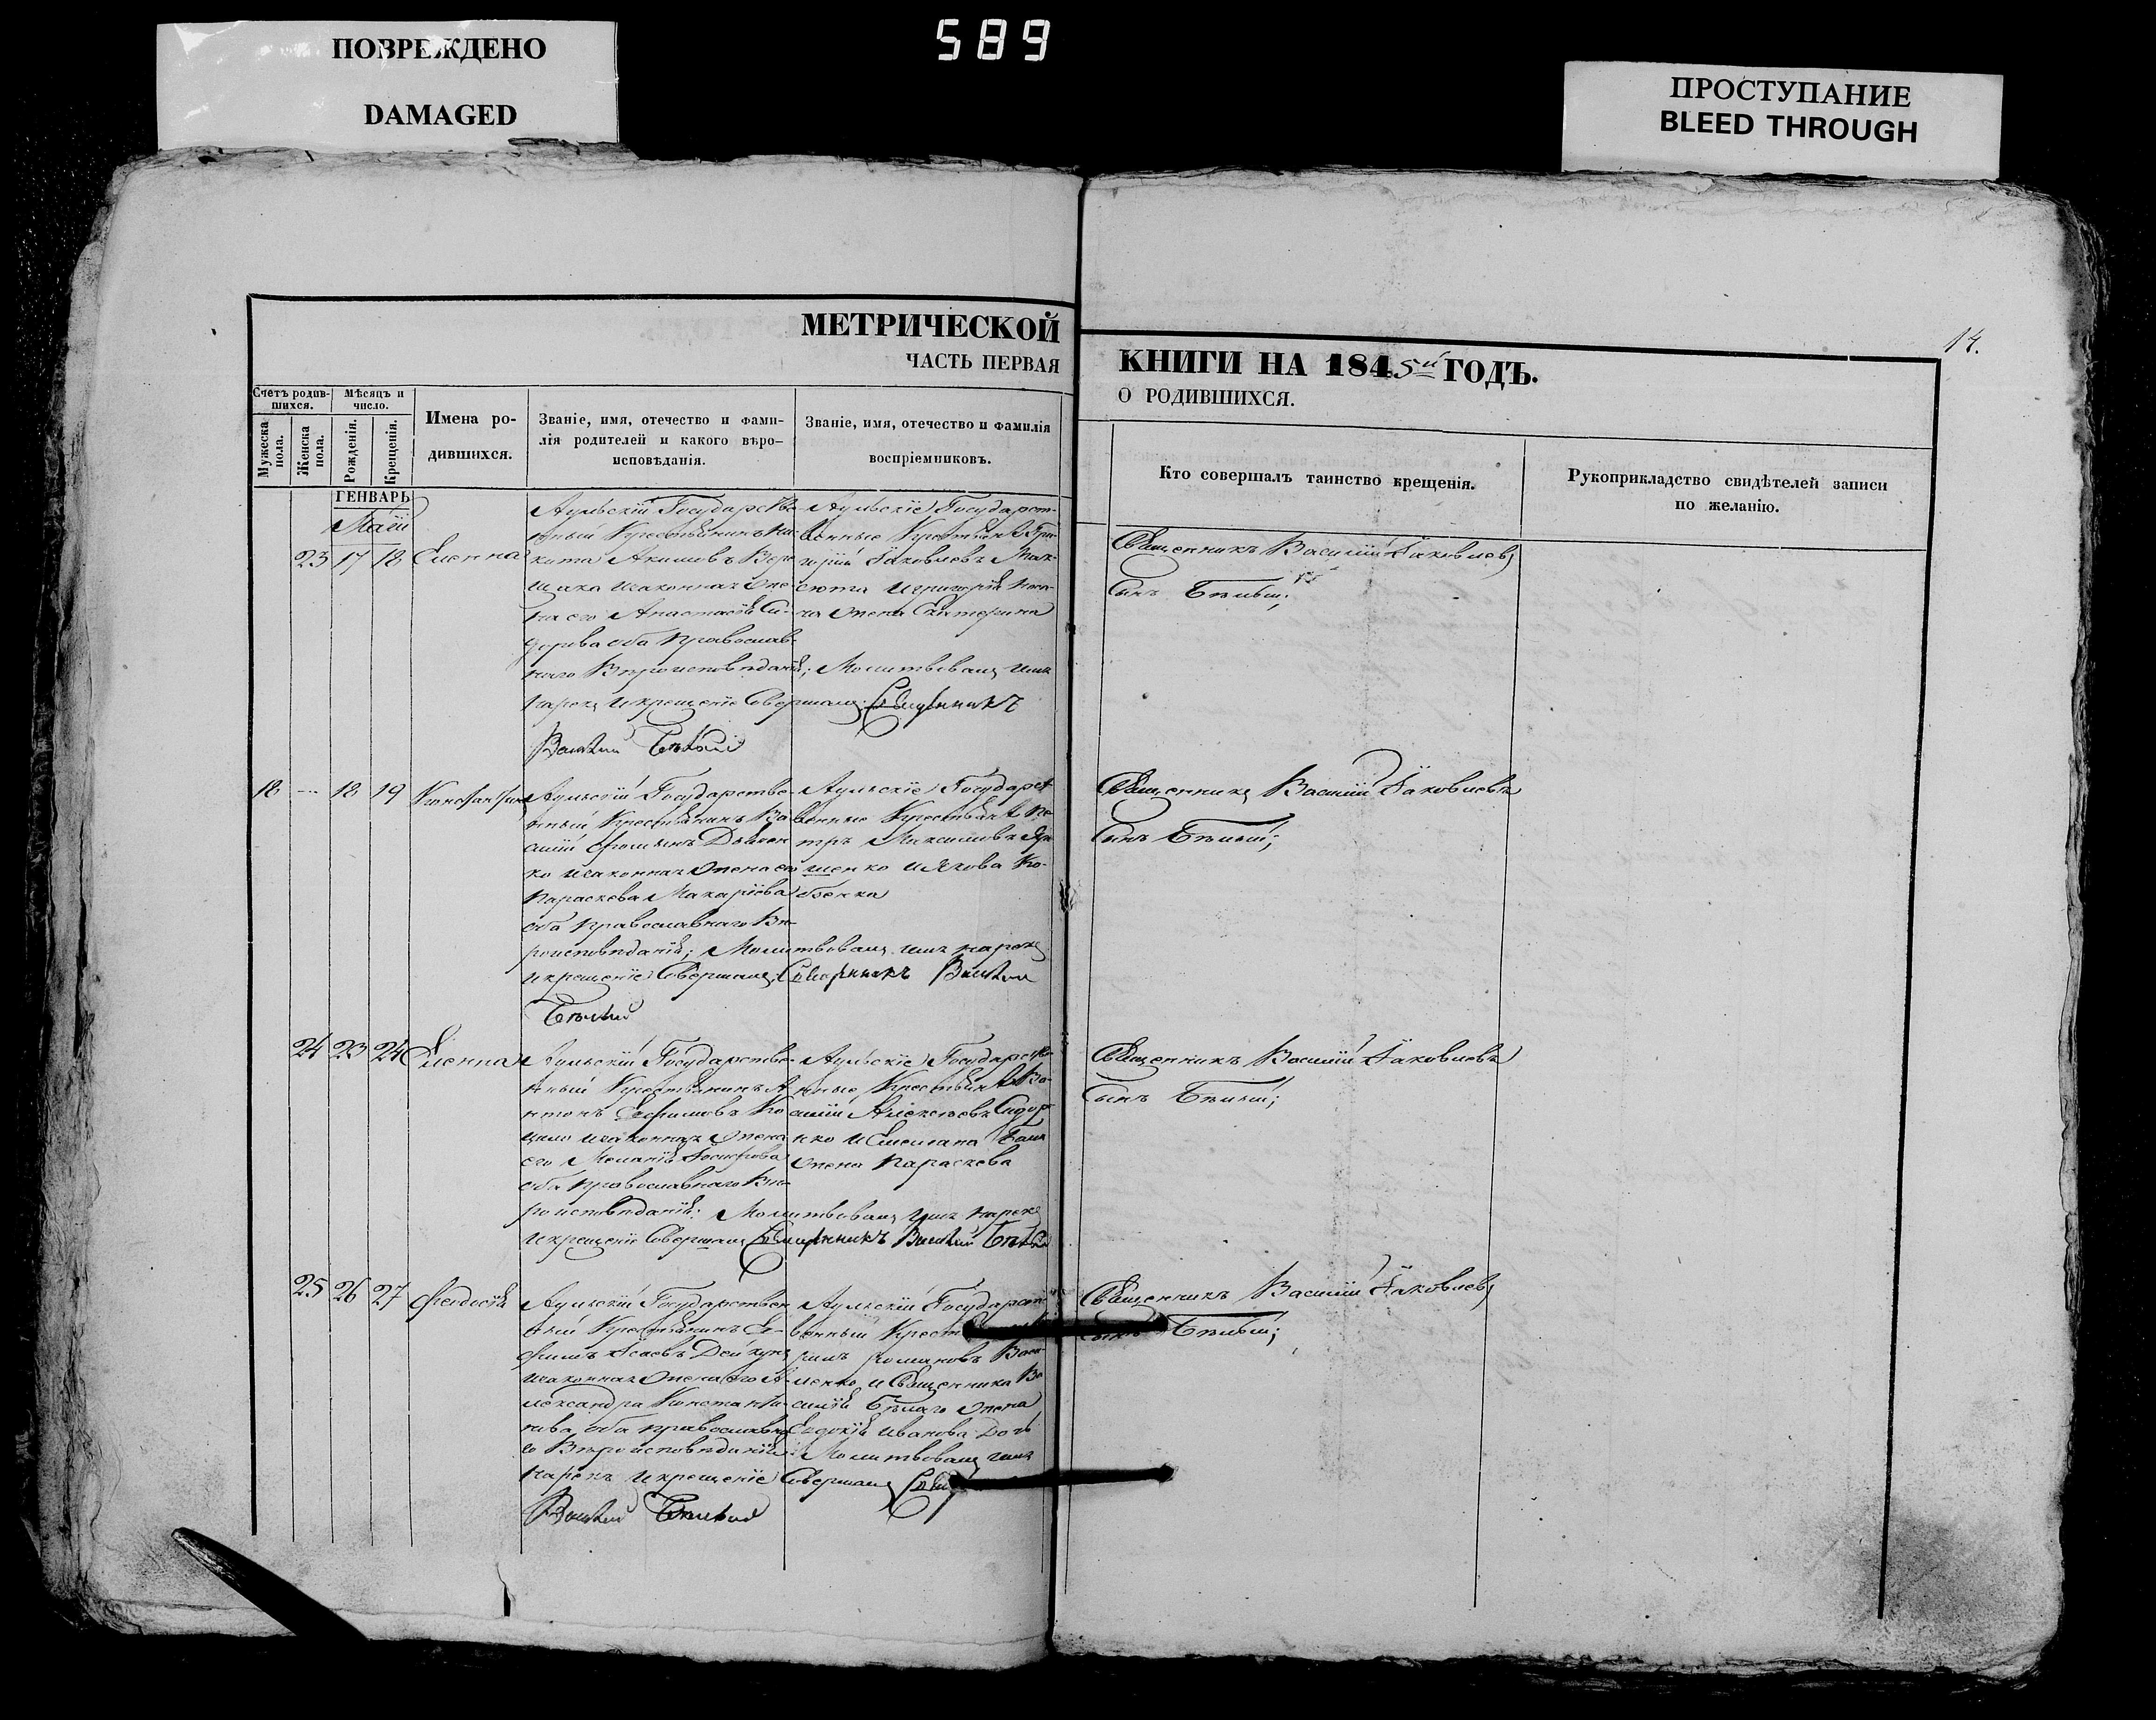 ПОВРЕЖДЕНО
DAMAGED
589
ПРОСТУПАНИЕ
BLEED THROUGH
14.
МЕТРИЧЕСКОЙ
ЧАСТЬ ПЕРВАЯ
КНИГИ НА 1845й ГОДЪ.
О РОДИВШИХСЯ.
Счетъ родившихся.
Мужеска пола.
Женска пола.
Мѣсяцъ и число.
Рожденія.
Крещенія.
Имена родившихся.
Званіе, имя, отечество и фамилія родителей и какого вѣроисповѣданія.
Званіе, имя, отечество и фамилія воспріемниковъ.
Кто совершалъ таинство крещенія.
Рукоприкладство свидѣтелей записи по желанію.
ГЕНВАРЬ
Маій
23 17 18 Еленна
Аульскій Государстве-
нный Крестьянинъ Ни-
кита Акимовъ
и законная жена
его Анастасія Си-
дорова оба православ-
наго Вѣроисповѣданія; Молитвовалъ имя
нарекъ и крещеніе Совершалъ Священникъ
Василій Бѣлый
Аульскіе Государст-
венные Крестьяне Гри-
горій Яковлевъ
и Григорія
жена Екатерина
Священникъ Василій Яковлевъ
Сынъ Бѣлый;
18 --- 18 19 Константинъ
Аульскій Государстве-
нный Крестьянинъ Ва-
силій
и законная жена его
Параскева Макаріева
оба православнаго Вѣ-
роисповѣданія; Молитвовалъ имя нарекъ
и крещеніе Совершалъ Священникъ Василій
Бѣлый
Аульскіе Государст-
венные Крестьяне Пе-
тръ Максимовъ
и Якова
Священникъ Василій Яковлевъ
Сынъ Бѣлый;
24 23 24 Еленна
Аульскій Государстве-
нный Крестьянинъ А-
нтонъ Ефимовъ
и законная жена
его Меланія
оба православнаго Вѣ-
роисповѣданія: Молитвовалъ имя нарекъ
и крещеніе Совершалъ Священникъ Василій Бѣлый
Аульскіе Государстве-
нные Крестьяне Ва-
силій Алексѣевъ Сидор
нко и Емелиана
жена Параскева
Священникъ Василій Яковлевъ
Сынъ Бѣлый;
25 26 27 Феодосія
Аульскій Государствен
ный Крестьянинъ Е-
фимъ Исаевъ
и законная жена его А-
лександра Константи-
нова, оба православна
го Вѣроисповѣданія: Молитвовалъ имя
нарекъ и крещеніе Совершалъ
Василій Бѣлый
Аульскій Государст-
венный
Романовъ Васи-
ленко и Священника Ва
силія Бѣлаго жена
Евдокія Иванова Дочь
Священникъ Василій Яковлевъ
Сынъ Бѣлый;